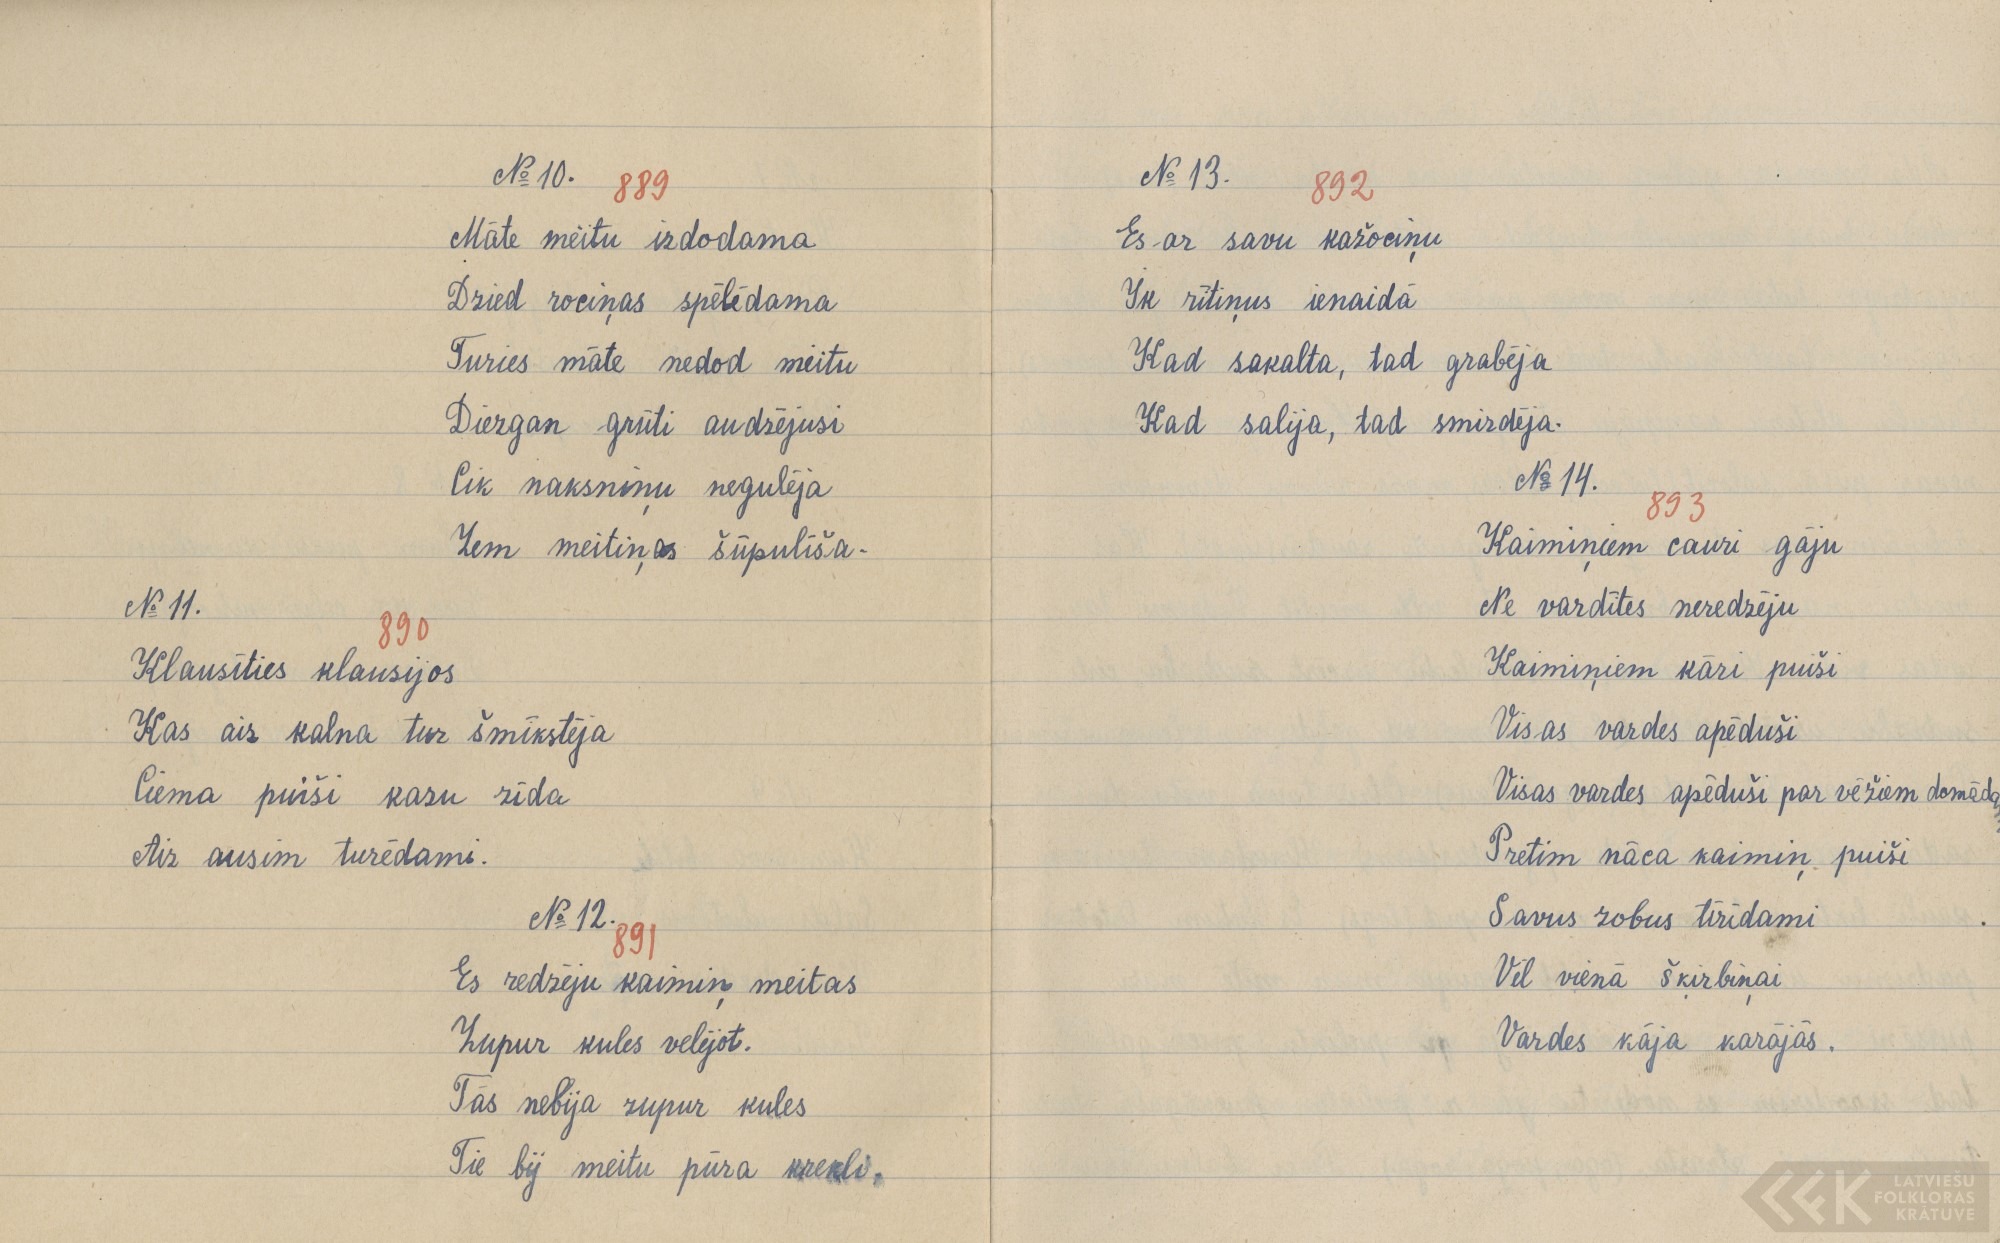 № 10. 889
Māte meitu izdodama
Dzied rociņas spēlēdama
Turies māte nedod meitu
Diezgan grūti audzējusi
Cik naksniņu negulēja
Zem meitiņas šūpulīša.
№ 11.
890
Klausīties klausijos
Kas aiz kalna tur šmīkstēja
Ciema puiši kazu zīda
Aiz ausim turēdami.
№ 12.
891
Es redzēju kaimiņ meitas
Zupur kules velējot.
Tās nebija zupur kules
Tie bij meitu pūra krekli.
№ 13. 892
Es ar savu kažociņu
Ik rītiņus ienaidā
Kad sakalta, tad grabēja
Kad salija, tad smirdēja.
№ 14.
893
Kaimiņiem cauri gāju
Ne vardītes neredzēju
Kaimiņiem kāri puiši
Visas vardes apēduši
Visas vardes apēduši par vēžiem domādam
Pretim nāca kaimiņ puiši
Savus zobus tīrīdami
Vēl vienā šķirbiņai
Vardes kāja karājās.
LATVIEŠU
FOLKLORAS
KRĀTUVE